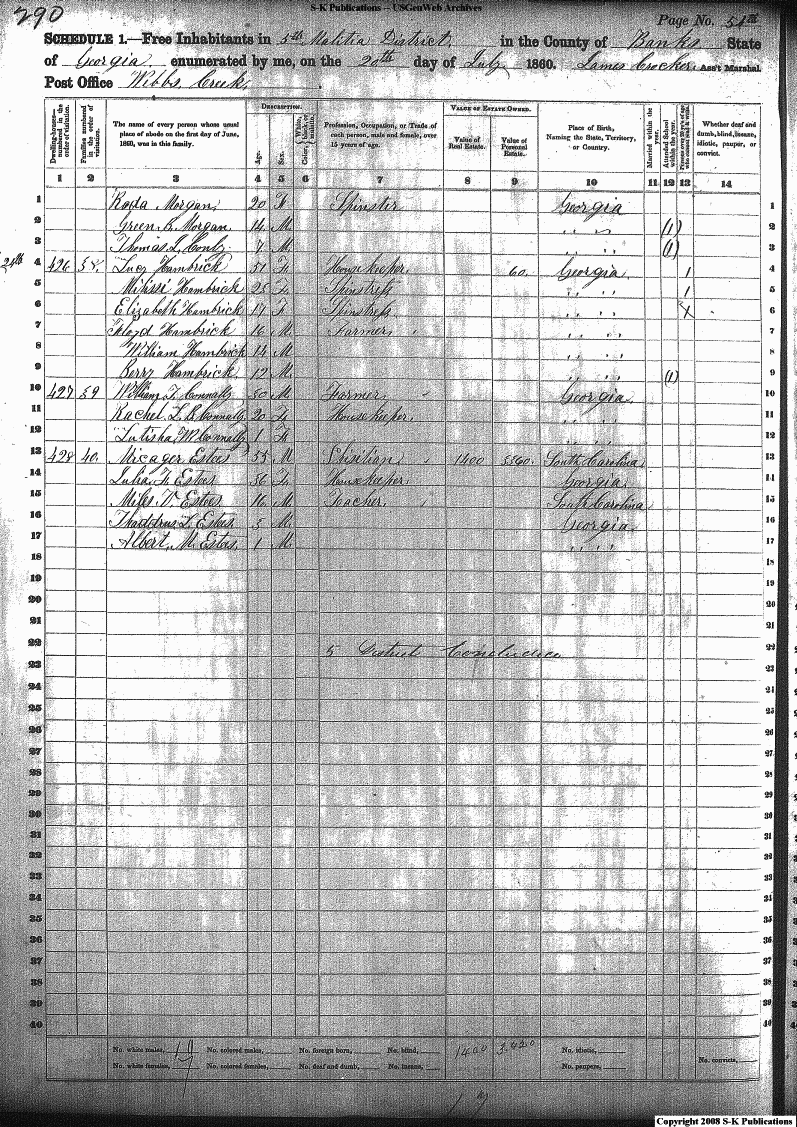 S-K Publications -- USGenWeb Archives
290
Page No. 51
SCHEDULE 1.—Free Inhabitants in 5th Malitia District in the County of Banks State
of Georgia enumerated by me, on the 20th day of July 1860. James Crocker Ass't Marshal.
Post Office Webbs Creek
Dwelling-houses—numbered in the order of visitation.
Families numbered in the order of visitation.
The name of every person whose usual place of abode on the first day of June, 1860, was in this family.
DESCRIPTION.
Age.
Sex.
Color, White, black, or mulatto.
Profession, Occupation, or Trade of each person, male and female, over 15 years of age.
VALUE OF ESTATE OWNED.
Value of Real Estate.
Value of Personal Estate.
Place of Birth, Naming the State, Territory, or Country.
Married within the year.
Attended School within the year.
Persons over 20 y'rs of age who cannot read & write.
Whether deaf and dumb, blind, insane, idiotic, pauper, or convict.
1 2 3 4 5 6 7 8 9 10 11 12 13 14
1 Roda Morgan 20 F Spinster Georgia 1
2 Green R. Morgan 14 M " " (1) 2
3 Thomas L. 7 M " " (1) 3
24th 4 426 Lucy Hambrick 51 F Housekeeper 60 Georgia 1 4
5 Milissi Hambrick 25 F Spinstress " " 1 5
6 Elizabeth Hambrick 17 F Spinstress " " X 6
7 Floyd Hambrick 16 M Farmer " " 7
8 William Hambrick 14 M " " 8
9 Berry Hambrick 12 M " " (1) 9
10 427 59 William F. Connally 50 M Farmer Georgia 10
11 Rachel L. R. Connally 20 F Housekeeper " " 11
12 Lutisha W. Connally 1 F " " 12
13 428 40 Micager Estes 55 M 1400 3360 South Carolina 13
14 Julia F. Estes 36 F Housekeeper Georgia 14
15 Miles W. Estes 16 M Teacher South Carolina 15
16 Thaddrus L. Estes 3 M Georgia 16
17 Albert M. Estes 1 M " " 17
18 18
19 19
20 20
21 21
22 5 District Concluded 22
23 23
24 24
25 25
26 26
27 27
28 28
29 29
30 30
31 31
32 32
33 33
34 34
35 35
36 36
37 37
38 38
39 39
40 40
No. white males, No. colored males, No. foreign born, No. blind, 1400 3420 No. idiotic,
No. white females, No. colored females, No. deaf and dumb, No. insane, No. paupers, No. convicts,
17
Copyright 2008 S-K Publications